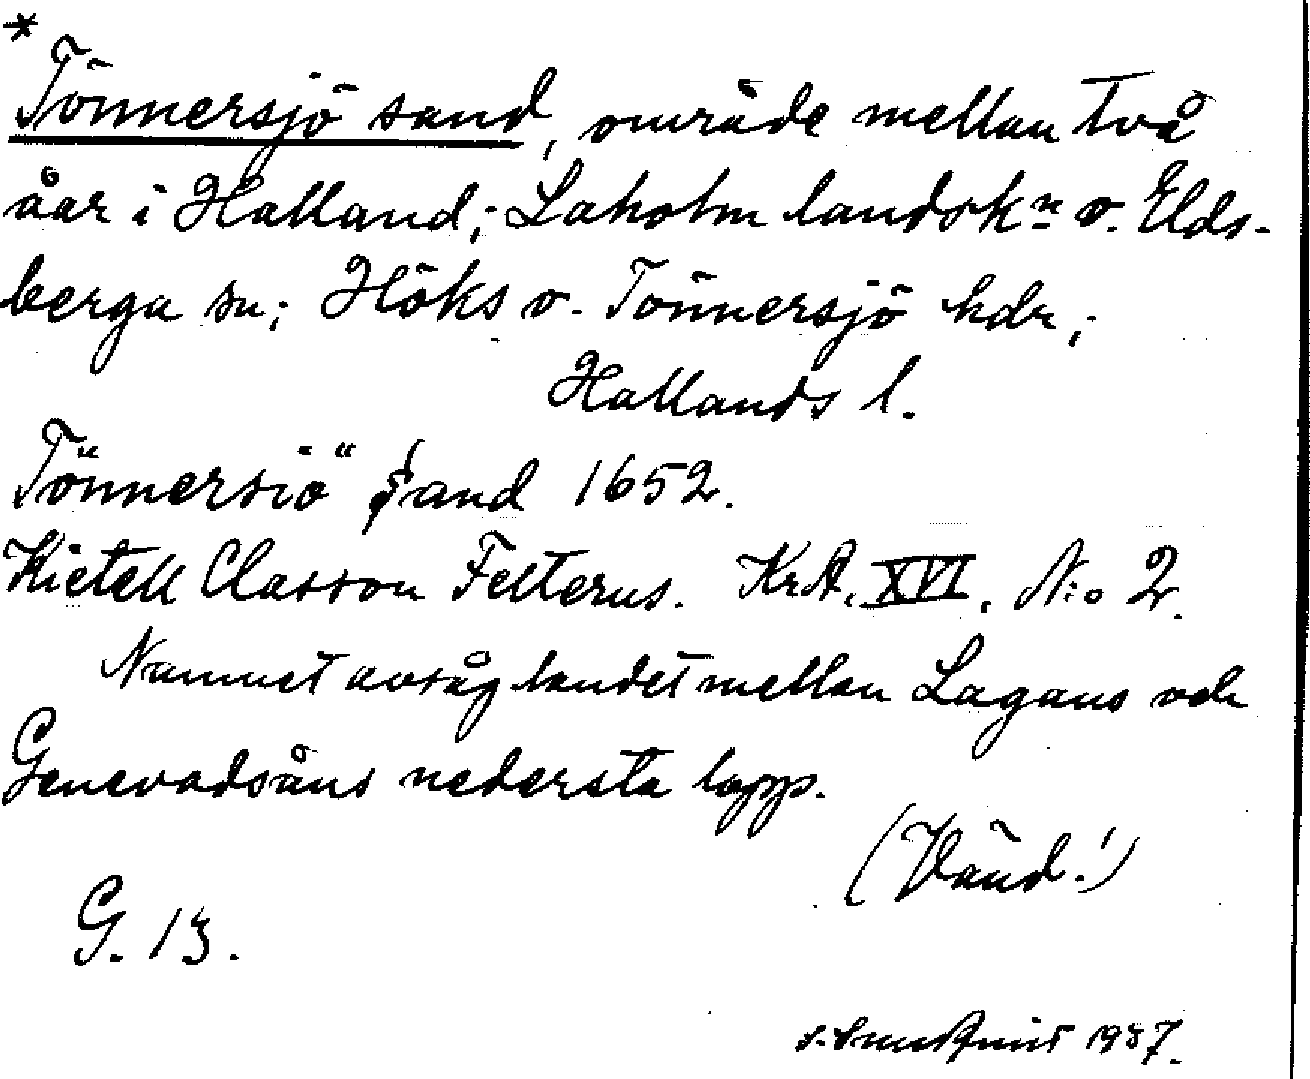 *
Tönnersjö sand, område mellan två
åar i Halland; Laholm landskn o. Elds-
berga sn; Höks o. Tönnersjö hdr;
Hallands l.
Tönnersiö sand 1652.
Kietell Classon Felterus. KrA. XVI. N:o 2.
Namnet avsåg landet mellan Lagans och
Genevadsåns nedersta lopp.
(Vänd!)
G. 13.
1937.